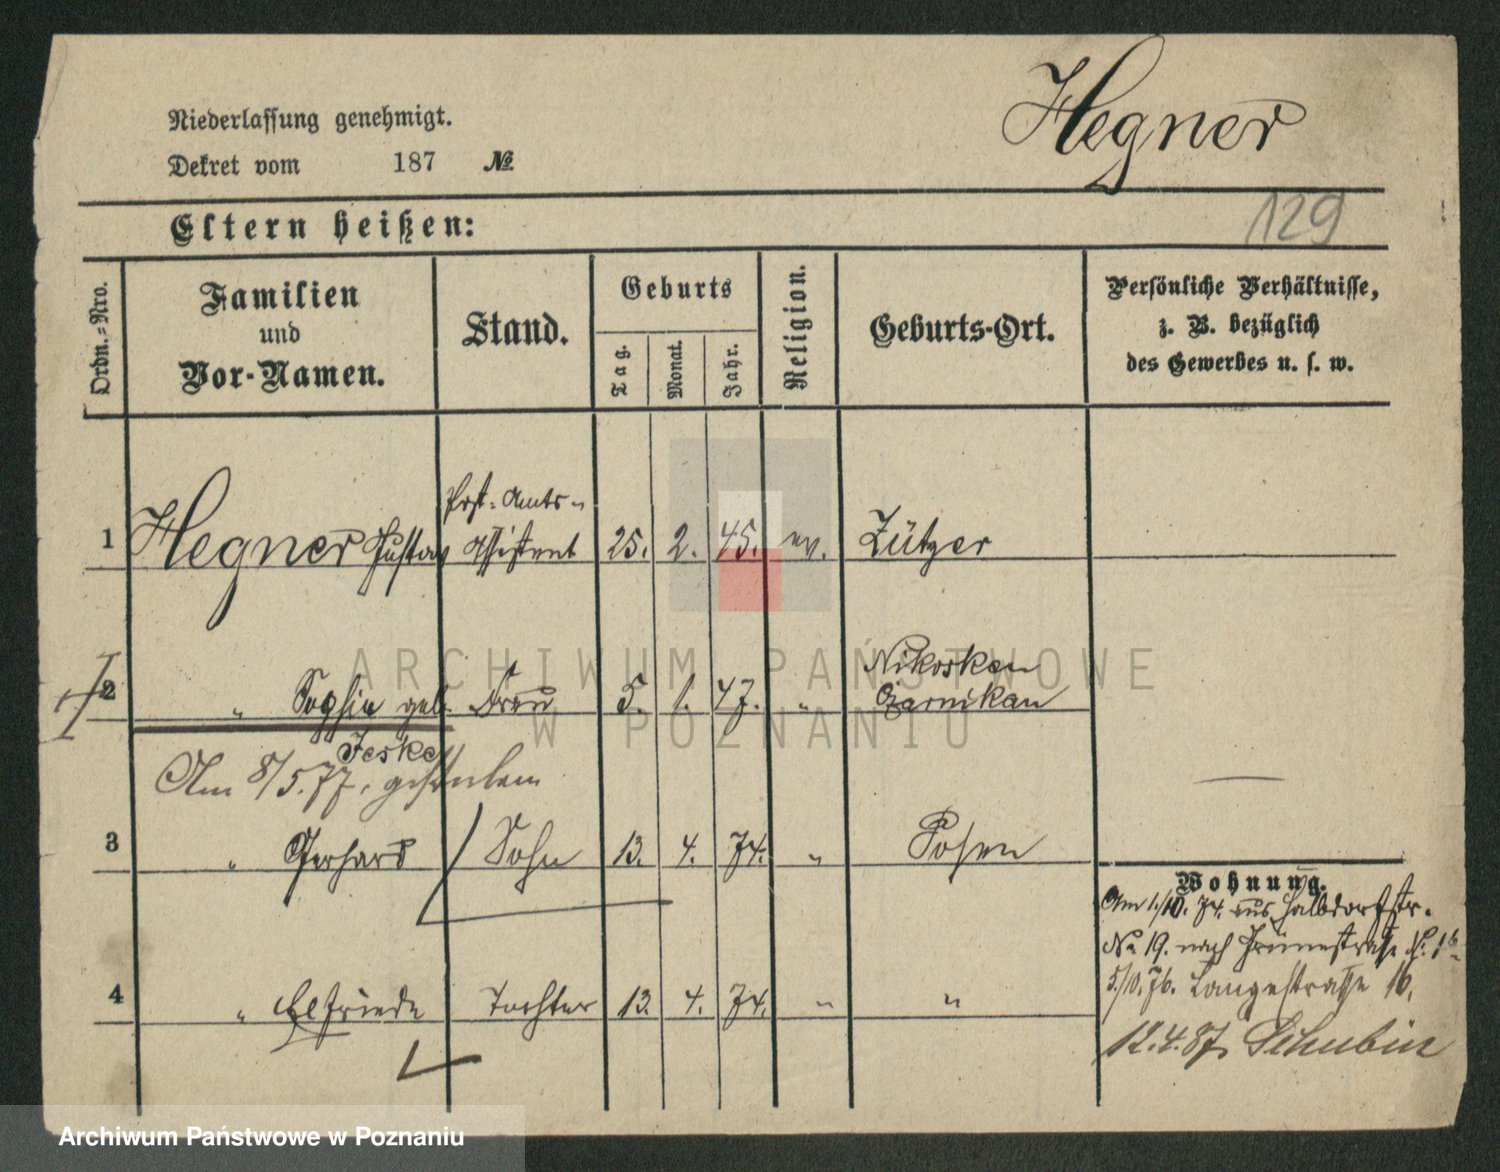 Hegner
Niederlassung genehmigt.
Dekret vom 187 №
129
Eltern heißen:
Ordn.-Nro.
Familien
und
Vor-Namen.
Stand.
Geburts
Tag.
Monat.
Jahr.
Religion.
Geburts-Ort.
Persönliche Verhältnisse,
z. B. bezüglich
des Gewerbes u. s. w.
Post-Amts-
1 Hegner Gustav Assistent 25. 2. 45. ev. Zützer
Czarnikau
2 " Sophie geb. Frau 5. 1. 47. "
Jeske
Am 8/5.77. gestorben
3 " Gerhard Sohn 13. 4. 74. " Posen
Wohnung.
Am 1/10. 74. aus Halbdorfstr.
No 19. nach Grünestraße N. 1
5/10. 76. Langestraße 16.
4 " Elfriede Tochter 13. 4. 74. " "
12.4.87. Schubin
ARCHIWUM PAŃSTWOWE
W POZNANIU
Archiwum Państwowe w Poznaniu